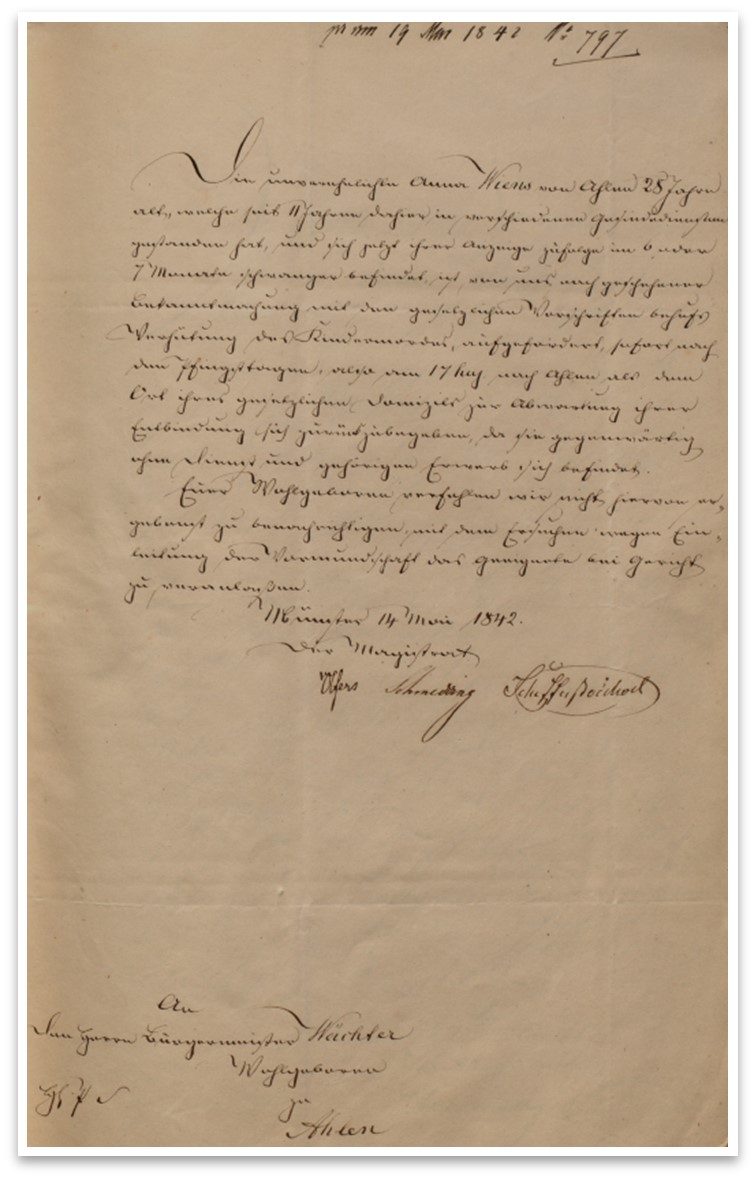 19 Mai 1842 No 797
Die unverehelichte Anna Wiens von Ahlen 28 Jahre
alt, welche seit 11 Jahren dahier in verschiedenen Gesindediensten
gestanden hat, und sich jetzt ihrer Anzeige zufolge im 6. oder
7 Monate schwanger befindet, ist von uns nach geschehener
Bekanntmachung mit den gesetzlichen Vorschriften behufs
Verhütung des Kindermordes, aufgefordert, sofort nach
den Pfingsttagen, also am 17 huj. nach Ahlen als dem
Ort ihres gesetzlichen Domizils zur Abwartung ihrer
Entbindung sich zurückzubegeben, da sie gegenwärtig
ohne Dienst und gehörigen Erwerb sich befindet.
Euer Wohlgeboren verfehlen wir nicht hiervon er-
gebenst zu benachrichtigen, mit dem Ersuchen wegen Ein-
leitung der Vormundschaft das Geeignete bei Gericht
zu veranlaßen.
Münster 14 Mai 1842.
Der Magistrat
Olfers Schmedding
An
den Herrn Bürgermeister Wächter
Wohlgeboren
zu
Ahlen